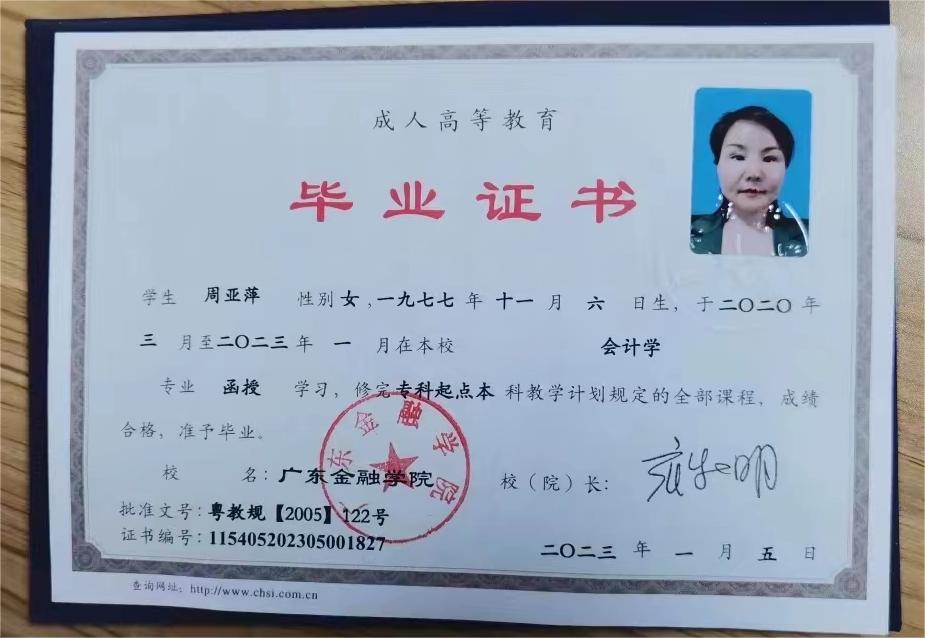 成人高等教育
毕业证书
学生 周亚萍 性别女,一九七七年十一月六日生,于二〇二〇年
三月至二〇二三年一月在本校 会计学
专业 函授 学习,修完专科起点本科教学计划规定的全部课程,成绩
合格,准予毕业。
校 名:广东金融学院
校(院)长:
批准文号:粤教规【2005】122号
证书编号:115405202305001827
二〇二三年一月五日
查询网址:http://www.chsi.com.cn
东金融学院